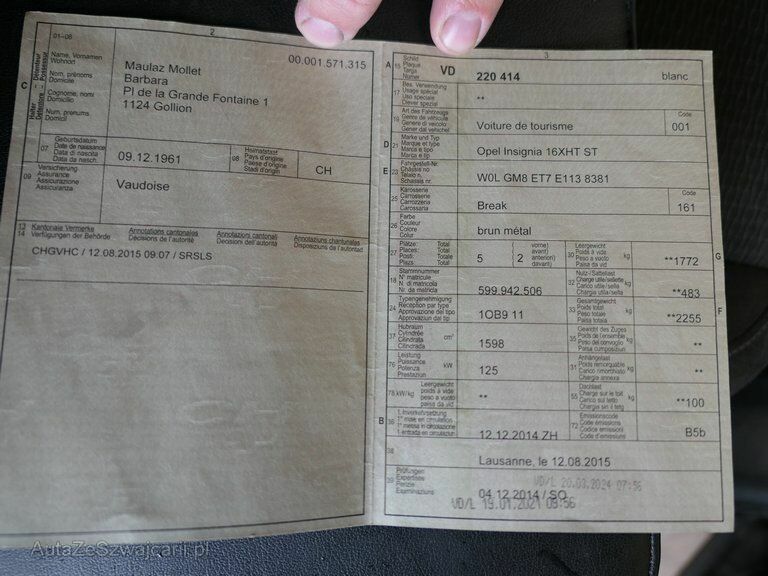 2
01-06
C
Halter - Détenteur
Detentore - Possessur
Name, Vornamen
Wohnort
Nom, prénoms
Domicile
Cognome, nomi
Domicilio
Num, prenums
Domicil
00.001.571.315
Maulaz Mollet
Barbara
Pl de la Grande Fontaine 1
1124 Gollion
07
Geburtsdatum
Date de naissance
Data di nascita
Data da nasch.
09.12.1961
08
Heimatstaat
Pays d'origine
Paese d'origine
Stadi d'origin
CH
09
Versicherung
Assurance
Assicurazione
Assicuranza
Vaudoise
13
14
Kantonale Vermerke
Verfügungen der Behörde
Annotations cantonales
Décisions de l'autorité
Annotazioni cantonali
Decisioni dell'autorità
Annotaziuns chantunalas
Disposiziuns da l'autoritad
CHGVHC / 12.08.2015 09:07 / SRSLS
3
A
15
Schild
Plaque
Targa
Numer
VD
220 414
blanc
17
Bes. Verwendung
Usage spécial
Uso speciale
Diever spezial
**
19
Art des Fahrzeugs
Genre de véhicule
Genere di veicolo
Gener dal vehichel
Voiture de tourisme
Code
001
D
21
Marke und Typ
Marque et type
Marca e tipo
Marca e tip
Opel Insignia 16XHT ST
E
23
Fahrgestell-Nr.
Châssis no
Telaio n.
Schassis nr.
W0L GM8 ET7 E113 8381
25
Karosserie
Carrosserie
Carrozzeria
Carossaria
Break
Code
161
26
Farbe
Couleur
Colore
Colur
brun métal
27
Plätze: Total
Places: Total
Posti: Totale
Plazs: Total
5
2
vorne)
avant)
anteriori)
davant)
30
Leergewicht
Poids à vide
Peso a vuoto
Paisa da vid
kg
**1772
G
18
Stammnummer
N° matricule
N. di matricola
Nr. da matricla
599.942.506
32
Nutz-/Sattellast
Charge utile/sellette
Carico utile/sella
Chargia utila/sella
kg
**483
24
Typengenehmigung
Réception par type
Approvazione del tipo
Approvaziun dal tip
1OB9 11
33
Gesamtgewicht
Poids total
Peso totale
Paisa totala
kg
**2255
F
37
Hubraum
Cylindrée
Cilindrata
Cilindrada
cm³
1598
35
Gewicht des Zuges
Poids de l'ensemble
Peso del convoglio
Paisa cumposiziun
kg
**
76
Leistung
Puissance
Potenza
Prestaziun
kW
125
31
Anhängelast
Poids remorquable
Carico rimorchiato
Chargia annexa
kg
**
78
kW/kg
Leergewicht
poids à vide
peso a vuoto
paisa da vid
**
55
Dachlast
Charge sur le toit
Carico sul tetto
Chargia sin il tetg
kg
**100
B
36
1. Inverkehrsetzung
1re mise en circulation
1a messa in circolazione
1. entrada en circulaziun
12.12.2014 ZH
72
Emissionscode
Code émissions
Codice emissioni
Code d'emissiuns
B5b
38
Lausanne, le 12.08.2015
39
Prüfungen
Expertises
Perizie
Examinaziuns
VD/L 20.03.2024 07:56
04.12.2014 / SO
VD/L 19.01.2021 08:56
AutaZeSzwajcarii.pl